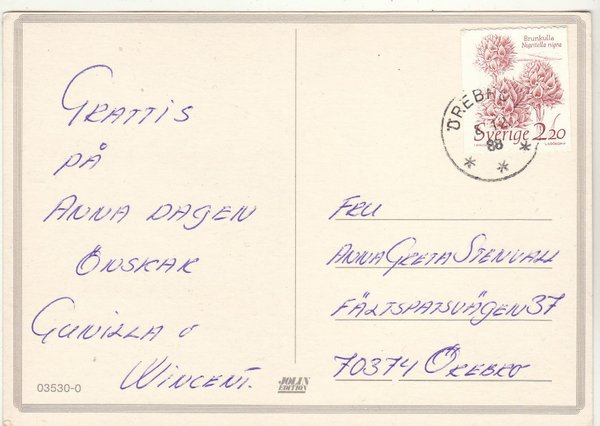 GRATTIS
PÅ
ANNA DAGEN
ÖNSKAR
GUNILLA O
WINCENT.
03530-0
JOLIN
EDITION
Brunkulla
Nigritella nigra
Sverige 2.20
ÖREBRO
12
88
FRU
ANNAGRETA STENVALL
FÄLTSPATSVÄGEN 37
70374 ÖREBRO